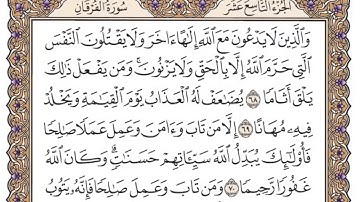 الجزء التاسع عشر
سورة الفرقان
وَالَّذِينَ لَا يَدْعُونَ مَعَ اللَّهِ إِلَٰهًا ءَاخَرَ وَلَا يَقْتُلُونَ النَّفْسَ
الَّتِي حَرَّمَ اللَّهُ إِلَّا بِالْحَقِّ وَلَا يَزْنُونَ ۚ وَمَن يَفْعَلْ ذَٰلِكَ
يَلْقَ أَثَامًا ٦٨ يُضَٰعَفْ لَهُ الْعَذَابُ يَوْمَ الْقِيَٰمَةِ وَيَخْلُدْ
فِيهِ مُهَانًا ٦٩ إِلَّا مَن تَابَ وَءَامَنَ وَعَمِلَ عَمَلًا صَٰلِحًا
فَأُو۟لَٰٓئِكَ يُبَدِّلُ اللَّهُ سَيِّـَٔاتِهِمْ حَسَنَٰتٍ ۗ وَكَانَ اللَّهُ
غَفُورًا رَّحِيمًا ٧٠ وَمَن تَابَ وَعَمِلَ صَٰلِحًا فَإِنَّهُ يَتُوبُ